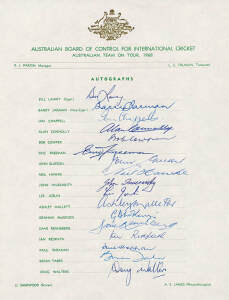 AUSTRALIAN BOARD OF CONTROL FOR INTERNATIONAL CRICKET
AUSTRALIAN TEAM ON TOUR, 1968
R. J. PARISH, Manager L. E. TRUMAN, Treasurer
AUTOGRAPHS
BILL LAWRY (Capt.) Bill Lawry
BARRY JARMAN (Vice-Capt.) Barry Jarman
IAN CHAPPELL Ian Chappell
ALAN CONNOLLY Alan Connolly
BOB COWPER Bob Cowper
ERIC FREEMAN Eric Freeman
JOHN GLEESON John Gleeson
NEIL HAWKE Neil Hawke
JOHN INVERARITY John Inverarity
LES JOSLIN L. Joslin
ASHLEY MALLETT Ashley Mallett
GRAHAM McKENZIE G McKenzie
DAVE RENNEBERG Dave Renneberg
IAN REDPATH Ian Redpath
PAUL SHEAHAN Paul Sheahan
BRIAN TABER Brian Taber
DOUG WALTERS Doug Walters
A. E. JAMES (Physiotherapist)